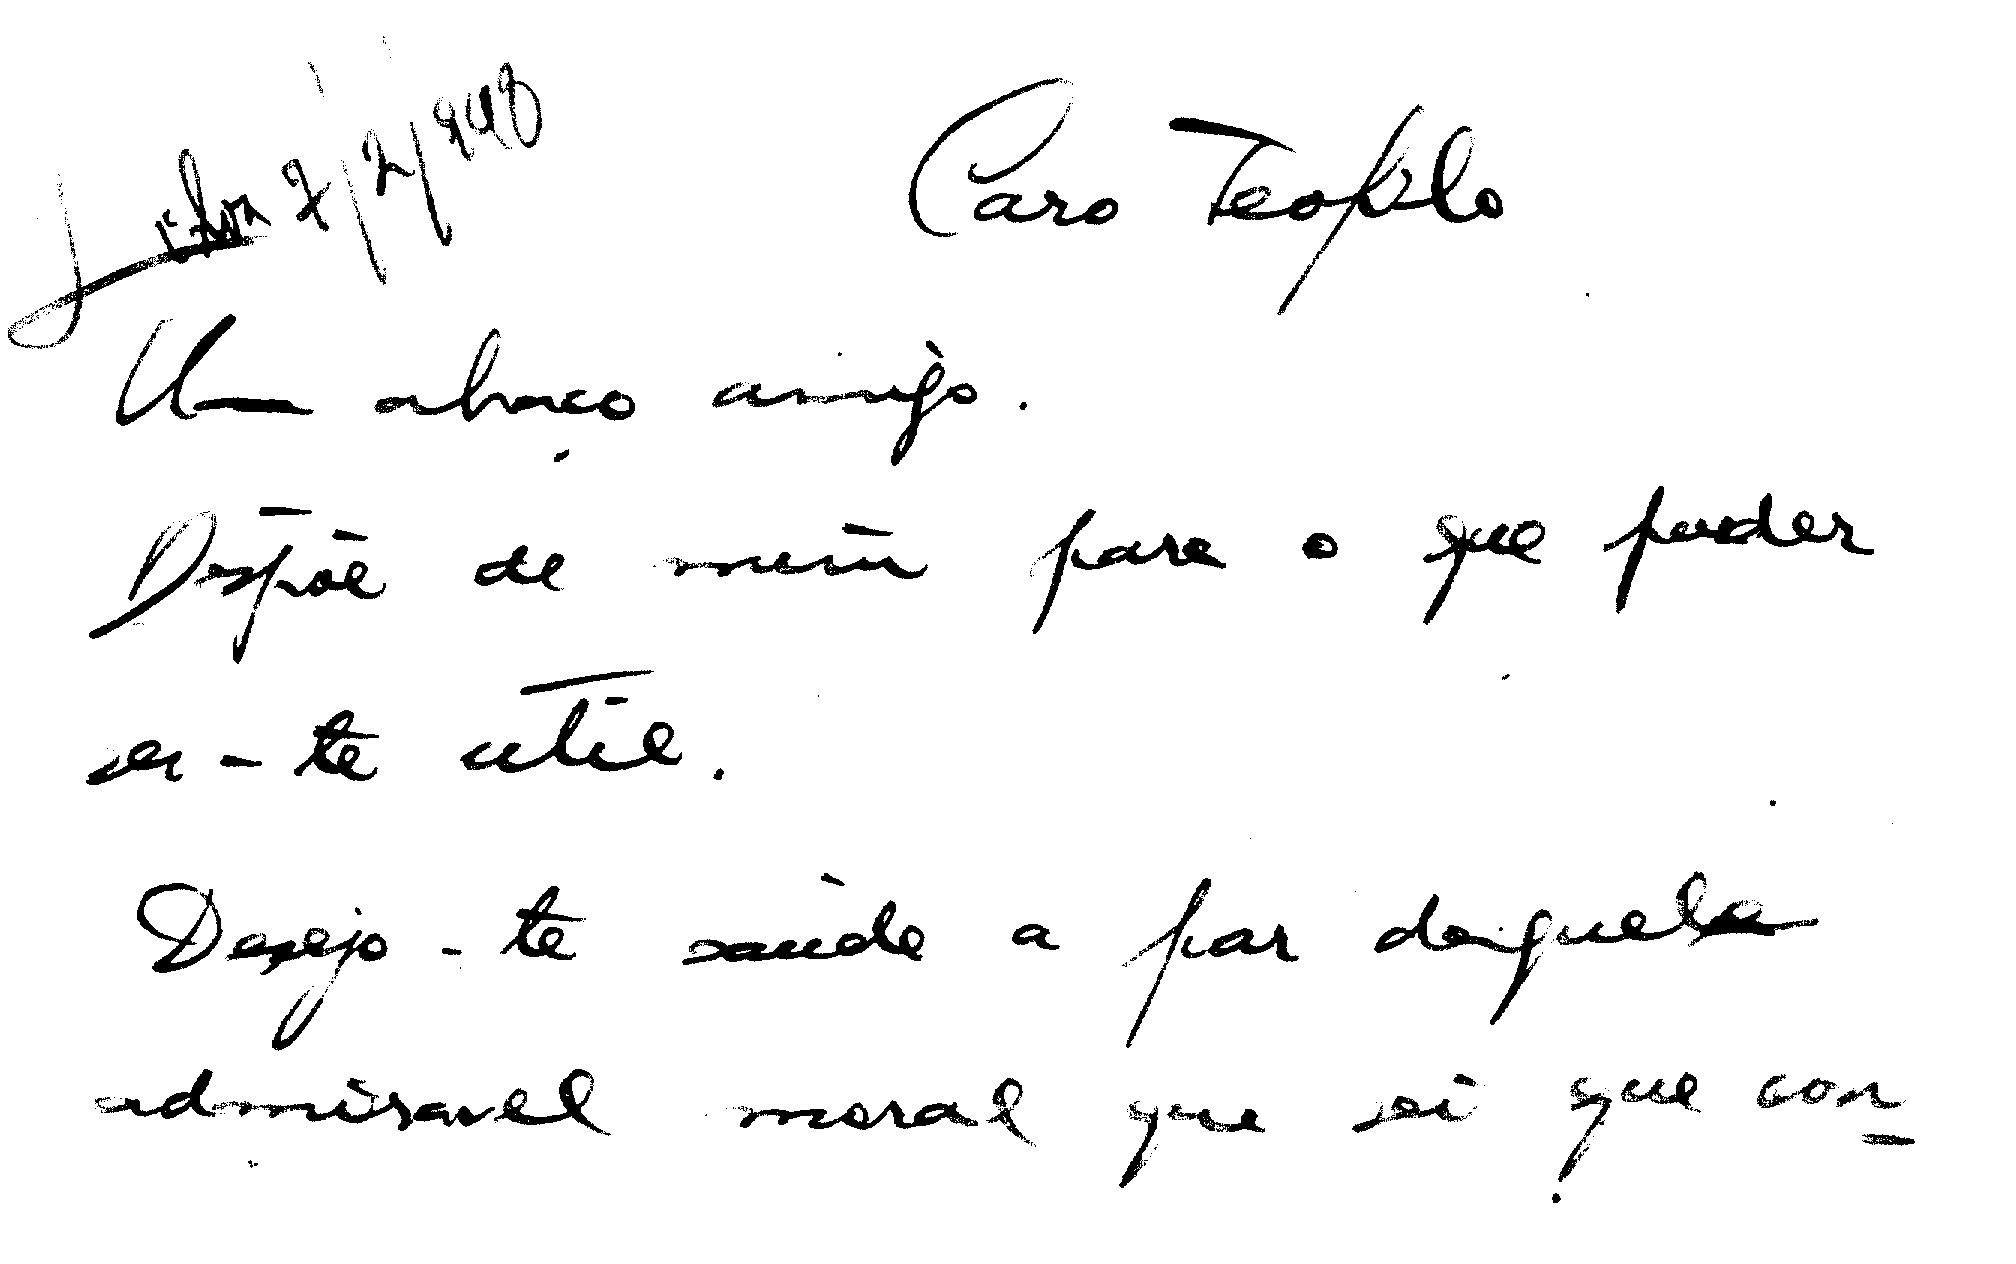 Lisboa 7/2/940
Caro Teofilo
Um abraço amigo.
Dispõe de mim para o que puder
ser-te útil.
Desejo-te saúde a par daquela
admiravel moral que sei que con-